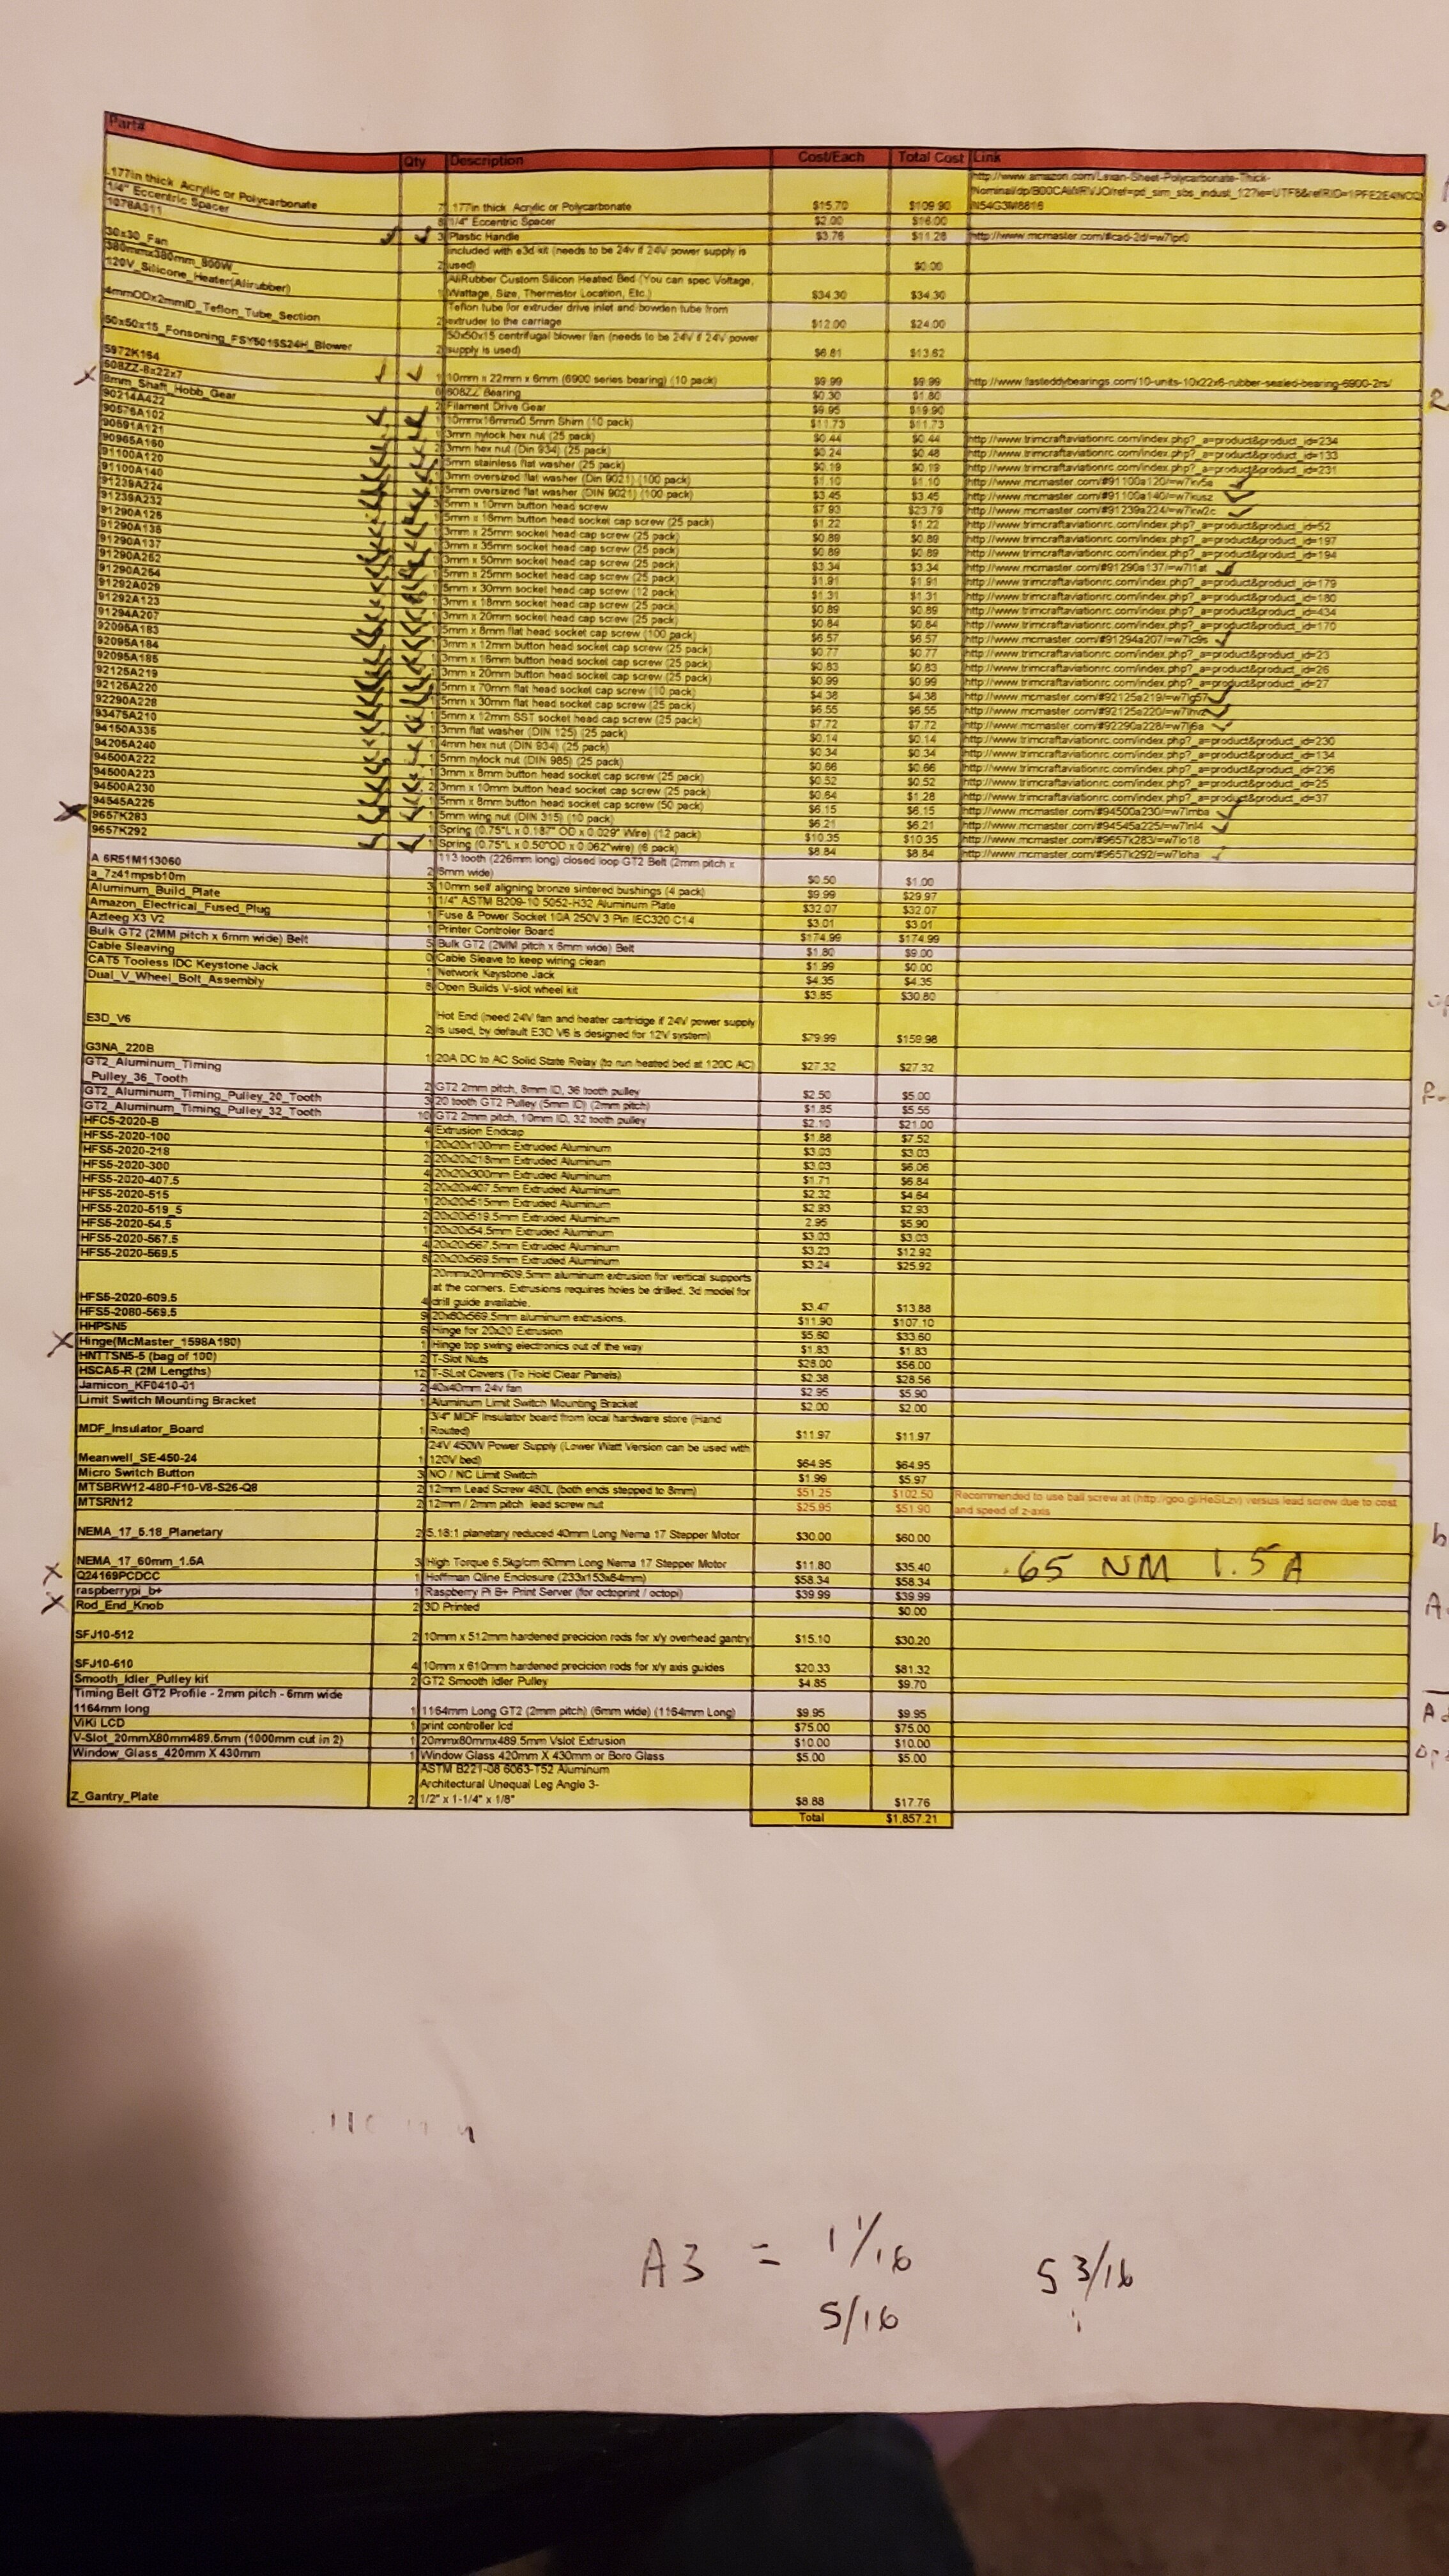 Part# Qty Description Cost/Each Total Cost Link
http://www.amazon.com/Lexan-Sheet-Polycarbonate-Thick-
.177in thick Acrylic or Polycarbonate 7 .177in thick Acrylic or Polycarbonate $15.70 $109.90
1/4" Eccentric Spacer 8 1/4" Eccentric Spacer $2.00 $16.00
1078A311 3 Plastic Handle $3.76 $11.28
30x30_Fan 2 included with e3d kit (needs to be 24v if 24V power supply is used) $0.00
380mmx380mm_800W_
120V_Silicone_Heater(Alirubber) AliRubber Custom Silicon Heated Bed (You can spec Voltage, Wattage, Size, Thermistor Location, Etc.) $34.30 $34.30
4mmODx2mmID_Teflon_Tube_Section 2 Teflon tube for extruder drive inlet and bowden tube from extruder to the carriage $12.00 $24.00
50x50x15_Fonsoning_FSY5015S24H_Blower 2 50x50x15 centrifugal blower fan (needs to be 24V if 24V power supply is used) $6.81 $13.62
5972K164 1 10mm x 22mm x 6mm (6900 series bearing) (10 pack) $9.99 $9.99 http://www.fasteddybearings.com/10-units-10x22x6-rubber-sealed-bearing-6900-2rs/
608ZZ-8x22x7 6 608ZZ Bearing $0.30 $1.80
8mm_Shaft_Hobb_Gear 2 Filament Drive Gear $9.95 $19.90
90214A422 1 10mmx16mmx0.5mm Shim (10 pack) $11.73 $11.73
90576A102 1 3mm nylock hex nut (25 pack) $0.44 $0.44 http://www.trimcraftaviationrc.com/index.php?_a=product&product_id=234
90591A121 2 3mm hex nut (Din 934) (25 pack) $0.24 $0.48 http://www.trimcraftaviationrc.com/index.php?_a=product&product_id=133
90965A160 1 5mm stainless flat washer (25 pack) $0.19 $0.19 http://www.trimcraftaviationrc.com/index.php?_a=product&product_id=231
91100A120 1 3mm oversized flat washer (Din 9021) (100 pack) $1.10 $1.10 http://www.mcmaster.com/#91100a120/=w7kv5a
91100A140 1 5mm oversized flat washer (DIN 9021) (100 pack) $3.45 $3.45 http://www.mcmaster.com/#91100a140/=w7kusz
91239A224 3 5mm x 10mm button head screw $7.93 $23.79 http://www.mcmaster.com/#91239a224/=w7kw2c
91239A232 1 5mm x 16mm button head socket cap screw (25 pack) $1.22 $1.22 http://www.trimcraftaviationrc.com/index.php?_a=product&product_id=52
91290A125 1 3mm x 25mm socket head cap screw (25 pack) $0.89 $0.89 http://www.trimcraftaviationrc.com/index.php?_a=product&product_id=197
91290A135 1 3mm x 35mm socket head cap screw (25 pack) $0.89 $0.89 http://www.trimcraftaviationrc.com/index.php?_a=product&product_id=194
91290A137 1 3mm x 50mm socket head cap screw (25 pack) $3.34 $3.34 http://www.mcmaster.com/#91290a137/=w7l1at
91290A252 1 5mm x 25mm socket head cap screw (25 pack) $1.91 $1.91 http://www.trimcraftaviationrc.com/index.php?_a=product&product_id=179
91290A254 1 5mm x 30mm socket head cap screw (12 pack) $1.31 $1.31 http://www.trimcraftaviationrc.com/index.php?_a=product&product_id=180
91292A029 1 3mm x 18mm socket head cap screw (25 pack) $0.89 $0.89 http://www.trimcraftaviationrc.com/index.php?_a=product&product_id=434
91292A123 1 3mm x 20mm socket head cap screw (25 pack) $0.84 $0.84 http://www.trimcraftaviationrc.com/index.php?_a=product&product_id=170
91294A207 1 5mm x 8mm flat head socket cap screw (100 pack) $6.57 $6.57 http://www.mcmaster.com/#91294a207/=w7lc9s
92095A183 1 3mm x 12mm button head socket cap screw (25 pack) $0.77 $0.77 http://www.trimcraftaviationrc.com/index.php?_a=product&product_id=23
92095A184 1 3mm x 16mm button head socket cap screw (25 pack) $0.83 $0.83 http://www.trimcraftaviationrc.com/index.php?_a=product&product_id=26
92095A185 1 3mm x 20mm button head socket cap screw (25 pack) $0.99 $0.99 http://www.trimcraftaviationrc.com/index.php?_a=product&product_id=27
92125A219 1 5mm x 70mm flat head socket cap screw (10 pack) $4.38 $4.38
92125A220 1 5mm x 30mm flat head socket cap screw (25 pack) $6.55 $6.55
92290A228 1 5mm x 12mm SST socket head cap screw (25 pack) $7.72 $7.72 http://www.mcmaster.com/#92290a228/=w7lj6a
93475A210 1 3mm flat washer (DIN 125) (25 pack) $0.14 $0.14 http://www.trimcraftaviationrc.com/index.php?_a=product&product_id=230
94150A335 1 4mm hex nut (DIN 934) (25 pack) $0.34 $0.34 http://www.trimcraftaviationrc.com/index.php?_a=product&product_id=134
94205A240 1 5mm nylock nut (DIN 985) (25 pack) $0.66 $0.66 http://www.trimcraftaviationrc.com/index.php?_a=product&product_id=236
94500A222 1 3mm x 8mm button head socket cap screw (25 pack) $0.52 $0.52 http://www.trimcraftaviationrc.com/index.php?_a=product&product_id=25
94500A223 2 3mm x 10mm button head socket cap screw (25 pack) $0.64 $1.28 http://www.trimcraftaviationrc.com/index.php?_a=product&product_id=37
94500A230 1 5mm x 8mm button head socket cap screw (50 pack) $6.15 $6.15 http://www.mcmaster.com/#94500a230/=w7lmba
94545A225 1 5mm wing nut (DIN 315) (10 pack) $6.21 $6.21 http://www.mcmaster.com/#94545a225/=w7lnl4
9657K283 1 Spring (0.75"L x 0.187" OD x 0.029" Wire) (12 pack) $10.35 $10.35 http://www.mcmaster.com/#9657k283/=w7lo18
9657K292 1 Spring (0.75"L x 0.50"OD x 0.062"wire) (6 pack) $8.84 $8.84 http://www.mcmaster.com/#9657k292/=w7loha
A 6R51M113060 2 113 tooth (226mm long) closed loop GT2 Belt (2mm pitch x 6mm wide) $0.50 $1.00
a_7z41mpsb10m 3 10mm self aligning bronze sintered bushings (4 pack) $9.99 $29.97
Aluminum_Build_Plate 1 1/4" ASTM B209-10 5052-H32 Aluminum Plate $32.07 $32.07
Amazon_Electrical_Fused_Plug 1 Fuse & Power Socket 10A 250V 3 Pin IEC320 C14 $3.01 $3.01
Azteeg X3 V2 1 Printer Controler Board $174.99 $174.99
Bulk GT2 (2MM pitch x 6mm wide) Belt 5 Bulk GT2 (2MM pitch x 6mm wide) Belt $1.80 $9.00
Cable Sleaving 0 Cable Sleave to keep wiring clean $1.99 $0.00
CAT5 Tooless IDC Keystone Jack 1 Network Keystone Jack $4.35 $4.35
Dual_V_Wheel_Bolt_Assembly 8 Open Builds V-slot wheel kit $3.85 $30.80
E3D_V6 2 Hot End (need 24V fan and heater cartridge if 24V power supply is used, by default E3D V6 is designed for 12V system) $79.99 $159.98
G3NA_220B 1 20A DC to AC Solid State Relay (to run heated bed at 120C AC) $27.32 $27.32
GT2_Aluminum_Timing
_Pulley_36_Tooth 2 GT2 2mm pitch, 8mm ID, 36 tooth pulley $2.50 $5.00
GT2_Aluminum_Timing_Pulley_20_Tooth 3 20 tooth GT2 Pulley (5mm ID) (2mm pitch) $1.85 $5.55
GT2_Aluminum_Timing_Pulley_32_Tooth 10 GT2 2mm pitch, 10mm ID, 32 tooth pulley $2.10 $21.00
HFC5-2020-B 4 Extrusion Endcap $1.88 $7.52
HFS5-2020-100 1 20x20x100mm Extruded Aluminum $3.03 $3.03
HFS5-2020-218 2 20x20x218mm Extruded Aluminum $3.03 $6.06
HFS5-2020-300 4 20x20x300mm Extruded Aluminum $1.71 $6.84
HFS5-2020-407.5 2 20x20x407.5mm Extruded Aluminum $2.32 $4.64
HFS5-2020-515 1 20x20x515mm Extruded Aluminum $2.93 $2.93
HFS5-2020-519_5 2 20x20x519.5mm Extruded Aluminum 2.95 $5.90
HFS5-2020-54.5 1 20x20x54.5mm Extruded Aluminum $3.03 $3.03
HFS5-2020-567.5 4 20x20x567.5mm Extruded Aluminum $3.23 $12.92
HFS5-2020-569.5 8 20x20x569.5mm Extruded Aluminum $3.24 $25.92
HFS5-2020-609.5 4 20mmx20mm609.5mm aluminum extrusion for vertical supports at the corners. Extrusions requires holes be drilled. 3d model for drill guide available. $3.47 $13.88
HFS5-2080-569.5 9 20x80x569.5mm aluminum extrusions. $11.90 $107.10
HHPSN5 6 Hinge for 20x20 Extrusion $5.60 $33.60
Hinge(McMaster_1598A180) 1 Hinge top swing electronics out of the way $1.83 $1.83
HNTTSN5-5 (bag of 100) 2 T-Slot Nuts $28.00 $56.00
HSCA5-R (2M Lengths) 12 T-SLot Covers (To Hold Clear Panels) $2.38 $28.56
Jamicon_KF0410-01 2 40x40mm 24v fan $2.95 $5.90
Limit Switch Mounting Bracket 1 Aluminum Limit Switch Mounting Bracket $2.00 $2.00
MDF_Insulator_Board 1 3/4" MDF Insulator board from local hardware store (Hand Routed) $11.97 $11.97
Meanwell_SE-450-24 1 24V 450W Power Supply (Lower Watt Version can be used with 120V bed) $64.95 $64.95
Micro Switch Button 3 NO / NC Limit Switch $1.99 $5.97
MTSBRW12-480-F10-V8-S26-Q8 2 12mm Lead Screw 480L (both ends stepped to 8mm) $51.25 $102.50 Recommended to use ball screw at (http://goo.gl/HeSLzv) versus lead screw due to cost
MTSRN12 2 12mm / 2mm pitch lead screw nut $25.95 $51.90 and speed of z-axis
NEMA_17_5.18_Planetary 2 5.18:1 planetary reduced 40mm Long Nema 17 Stepper Motor $30.00 $60.00
NEMA_17_60mm_1.5A 3 High Torque 6.5kg/cm 60mm Long Nema 17 Stepper Motor $11.80 $35.40 .65 NM 1.5A
Q24169PCDCC 1 Hoffman Qline Enclosure (233x153x84mm) $58.34 $58.34
raspberrypi_b+ 1 Raspberry Pi B+ Print Server (for octoprint / octopi) $39.99 $39.99
Rod_End_Knob 2 3D Printed $0.00
SFJ10-512 2 10mm x 512mm hardened precicion rods for x/y overhead gantry $15.10 $30.20
SFJ10-610 4 10mm x 610mm hardened precicion rods for x/y axis guides $20.33 $81.32
Smooth_Idler_Pulley kit 2 GT2 Smooth Idler Pulley $4.85 $9.70
Timing Belt GT2 Profile - 2mm pitch - 6mm wide
1164mm long 1 1164mm Long GT2 (2mm pitch) (6mm wide) (1164mm Long) $9.95 $9.95
ViKi LCD 1 print controller lcd $75.00 $75.00
V-Slot_20mmX80mm489.5mm (1000mm cut in 2) 1 20mmx80mmx489.5mm Vslot Extrusion $10.00 $10.00
Window_Glass_420mm X 430mm 1 Window Glass 420mm X 430mm or Boro Glass $5.00 $5.00
Z_Gantry_Plate 2 ASTM B221-08 6063-T52 Aluminum Architectural Unequal Leg Angle 3-1/2" x 1-1/4" x 1/8" $8.88 $17.76
Total $1,857.21
A3 = 1 1/16 5 3/16
5/16